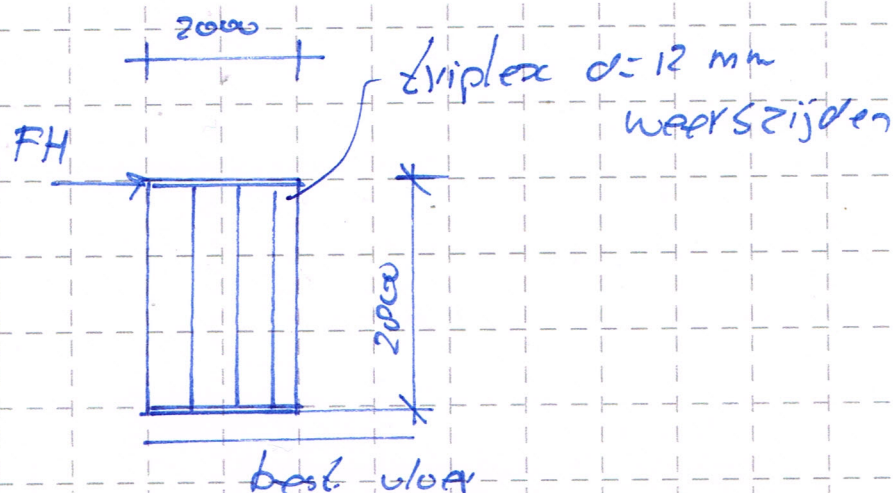 2000
triplex d=12 mm
weerszijden
FH
2800
best vloer